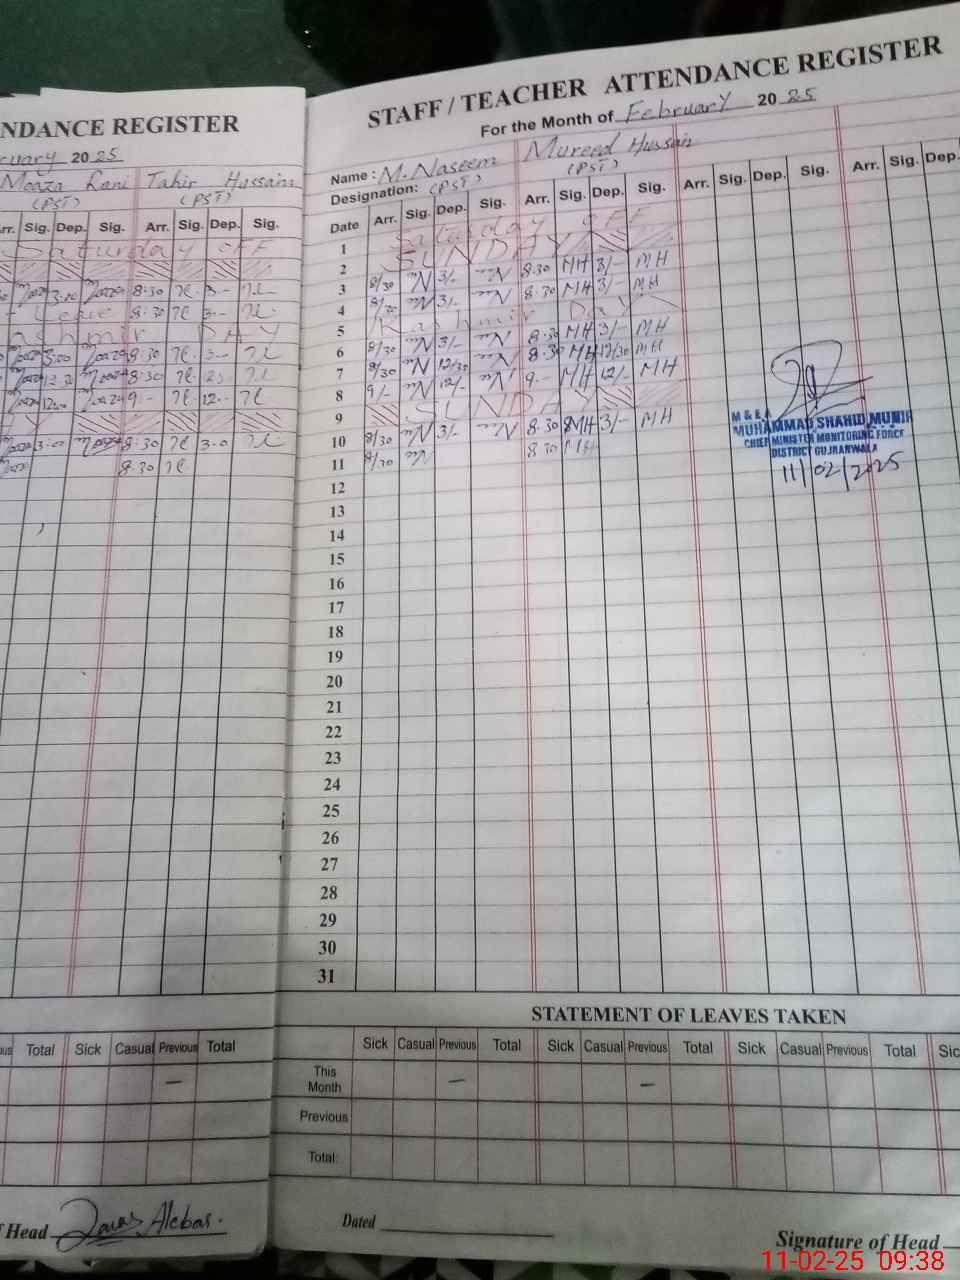 NDANCE REGISTER
20 25
Moaza Rani Tahir Hussain
(PST) (PST)
Arr. Sig. Dep. Sig. Arr. Sig. Dep. Sig.
Saturday OFF
3:00 8:30 3--
Leave 8:30 3--
DAY
3:00 8:30 3--
12:30 8:30
12:-- 9:-- 12:--
3:00 8:30 3:0
8:30
Total Sick Casual Previous Total
–
Head
STAFF / TEACHER ATTENDANCE REGISTER
For the Month of February 20 25
Name : M. Naseem Mureed Hussain
Designation: (PST) (PST)
Date Arr. Sig. Dep. Sig. Arr. Sig. Dep. Sig. Arr. Sig. Dep. Sig. Arr. Sig. Dep.
1 Saturday OFF
2 SUNDAY
3 8/30 N 3/- N 8:30 MH 3/- MH
4 8/30 N 3/- N 8:30 MH 3/- MH
5 Kashmir Day
6 8/30 N 3/- N 8:30 MH 3/- MH
7 8/30 N 12/30 N 8:30 MH 12/30 MH
8 9/- N 12/- N 9:-- MH 12/- MH
9 SUNDAY
10 8/30 N 3/- N 8:30 MH 3/- MH
11 8/30 N 8:30 MH
12
13
14
15
16
17
18
19
20
21
22
23
24
25
26
27
28
29
30
31
M & E A
MUHAMMAD SHAHID MUNIR
CHIEF MINISTER MONITORING FORCE
DISTRICT GUJRANWALA
11/02/2025
STATEMENT OF LEAVES TAKEN
Sick Casual Previous Total Sick Casual Previous Total Sick Casual Previous Total Sic
This Month – –
Previous
Total:
Dated
Signature of Head
11-02-25 09:38